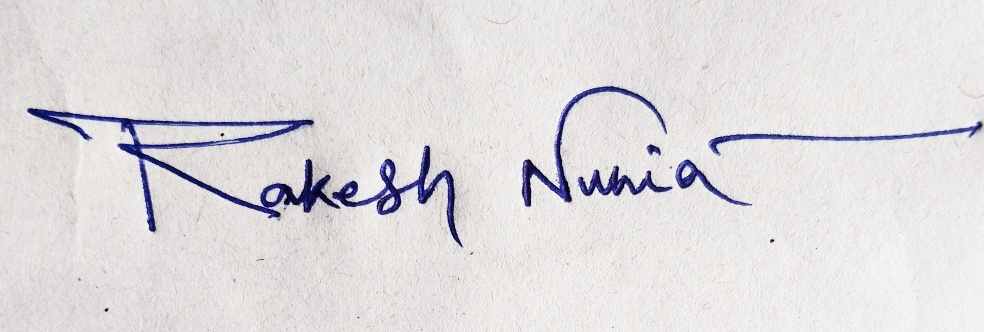 Rakesh Nunia